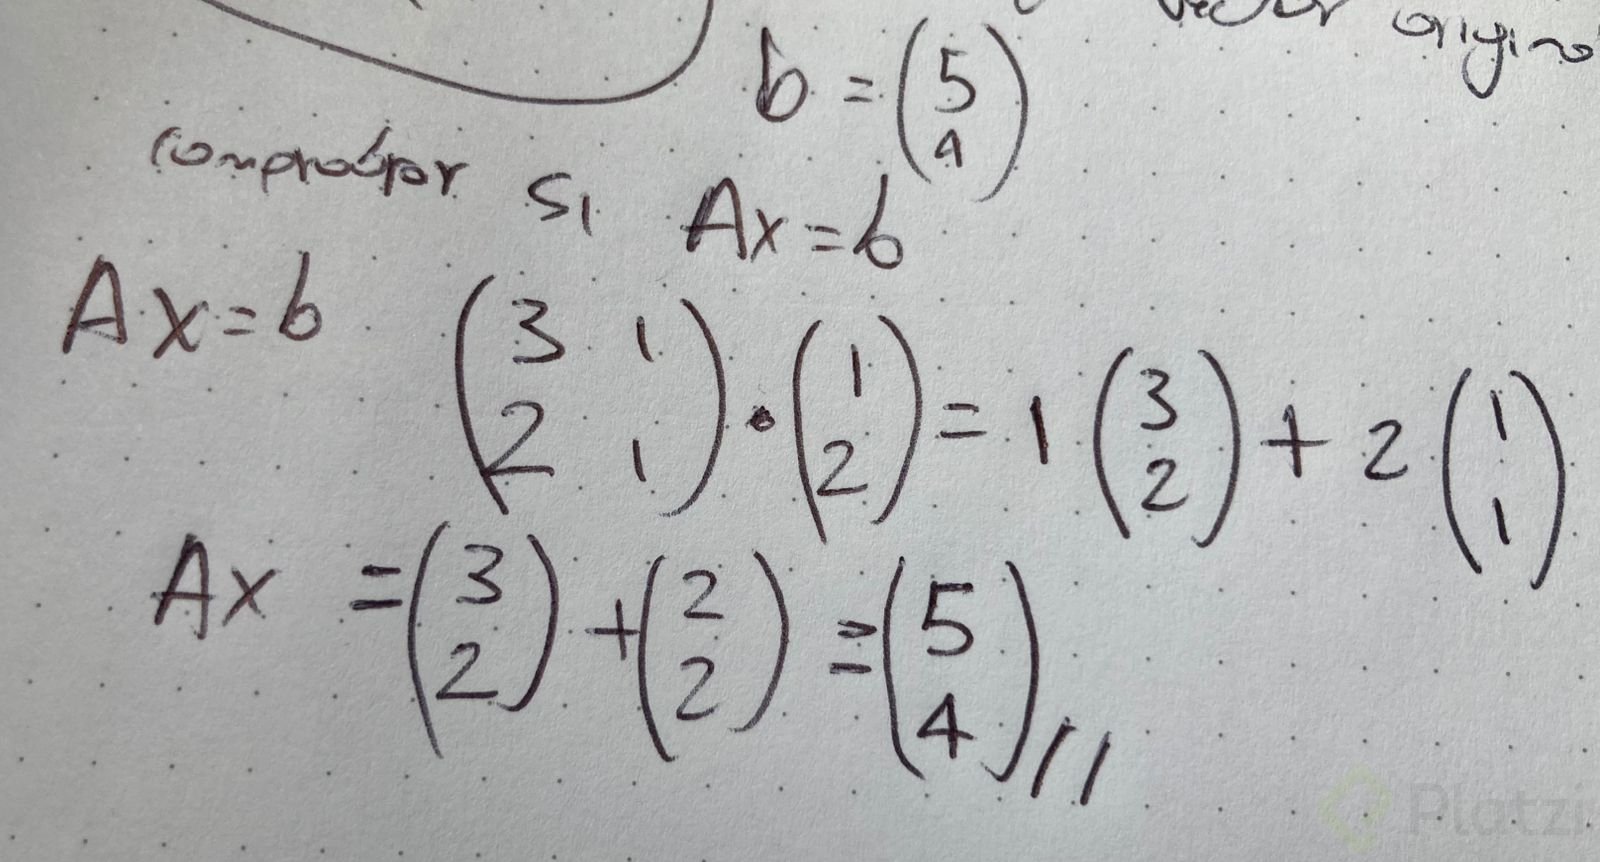 vector
b = (5 4)
comprobar si Ax = b
Ax = b (3 1 2 1) · (1 2) = 1 (3 2) + 2 (1 1)
Ax = (3 2) + (2 2) = (5 4) //
Platzi